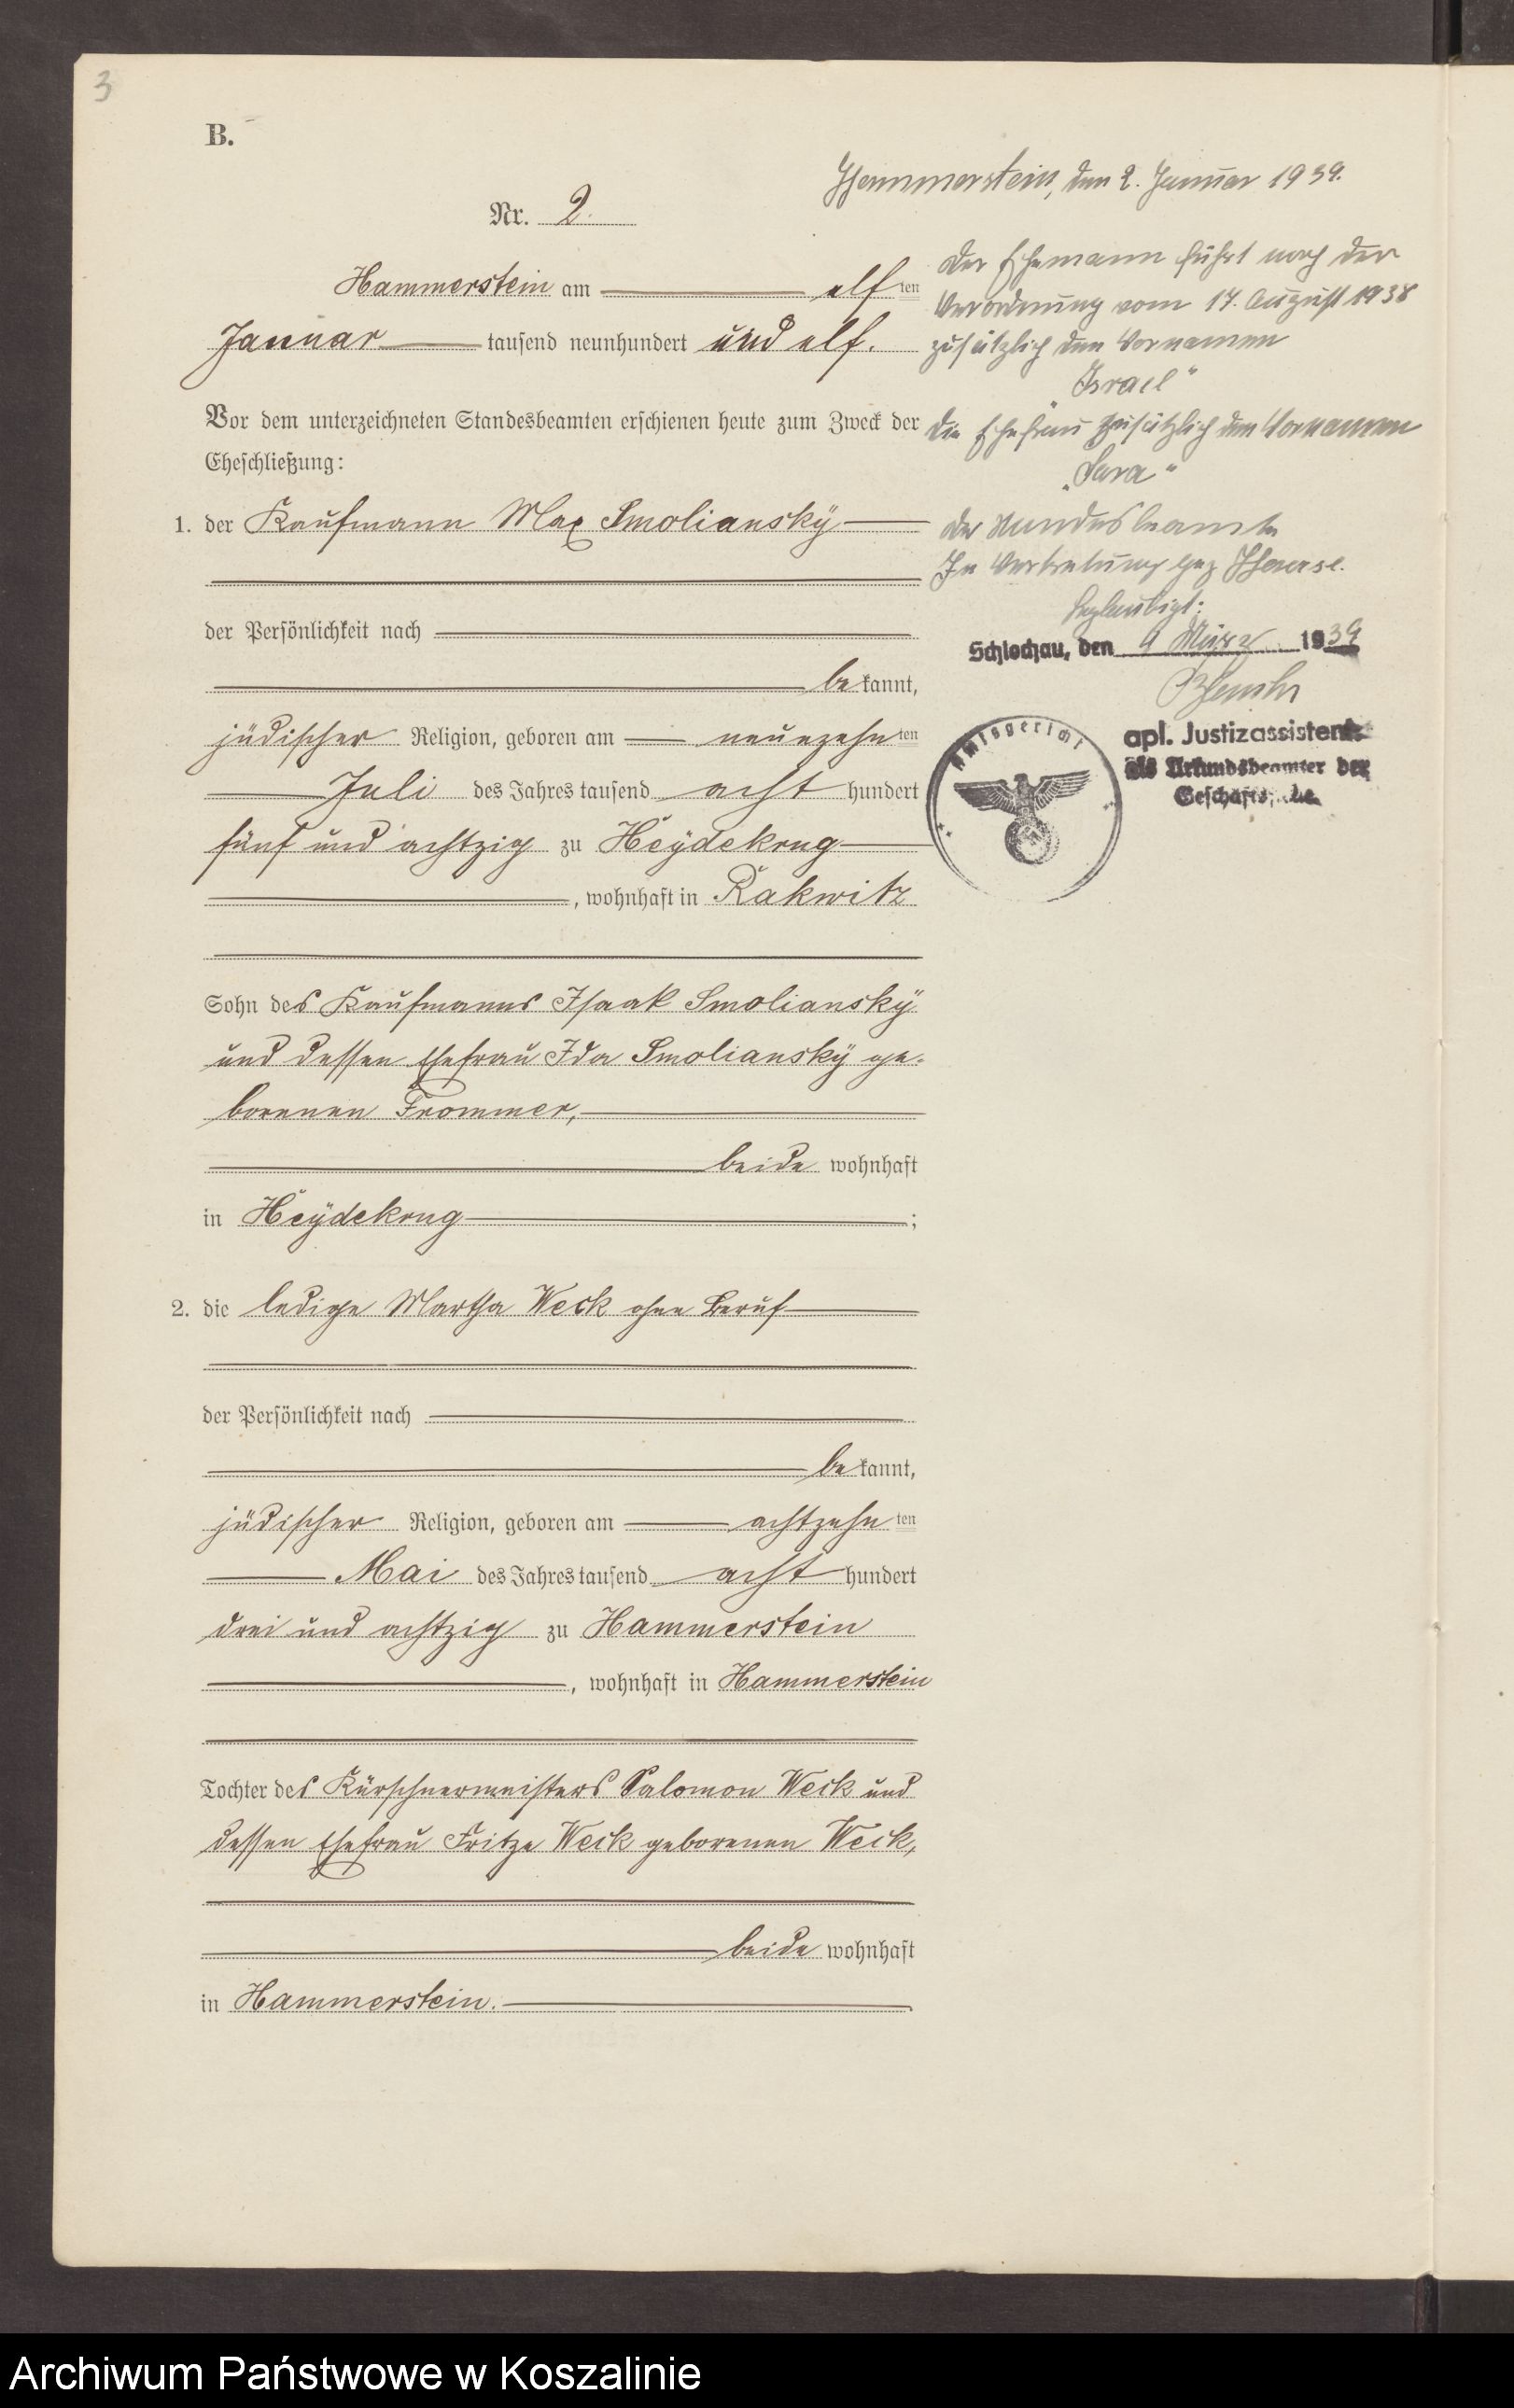 3
B.
Nr. 2.
Hammerstein am elften
Januar tausend neunhundert und elf.
Vor dem unterzeichneten Standesbeamten erschienen heute zum Zweck der
Eheschließung:
1. der Kaufmann Max Smoliansky
der Persönlichkeit nach
bekannt,
jüdischer Religion, geboren am neunzehnten
Juli des Jahres tausend acht hundert
fünf und achtzig zu Heydekrug
, wohnhaft in Rakwitz
Sohn des Kaufmanns Isaak Smoliansky
und dessen Ehefrau Ida Smoliansky ge-
borenen Frommer,
beide wohnhaft
in Heydekrug ;
2. die ledige Martha Weck ohne Beruf
der Persönlichkeit nach
bekannt,
jüdischer Religion, geboren am achtzehnten
Mai des Jahres tausend acht hundert
drei und achtzig zu Hammerstein
, wohnhaft in Hammerstein
Tochter des Kürschnermeisters Salomon Weck und
dessen Ehefrau Fritze Weck geborenen Weck,
beide wohnhaft
in Hammerstein.
Hammerstein, den 2. Januar 1939.
Der Ehemann führt nach der
Verordnung vom 17. August 1938
zusätzlich den Vornamen
"Israel"
die Ehefrau zusätzlich den Vornamen
"Sara"
Der Standesbeamte
In Vertretung gez Haase.
Beglaubigt:
Schlochau, den 9 März 1939
apl. Justizassistent
als Urkundsbeamter der
Amtsgericht
Archiwum Państwowe w Koszalinie